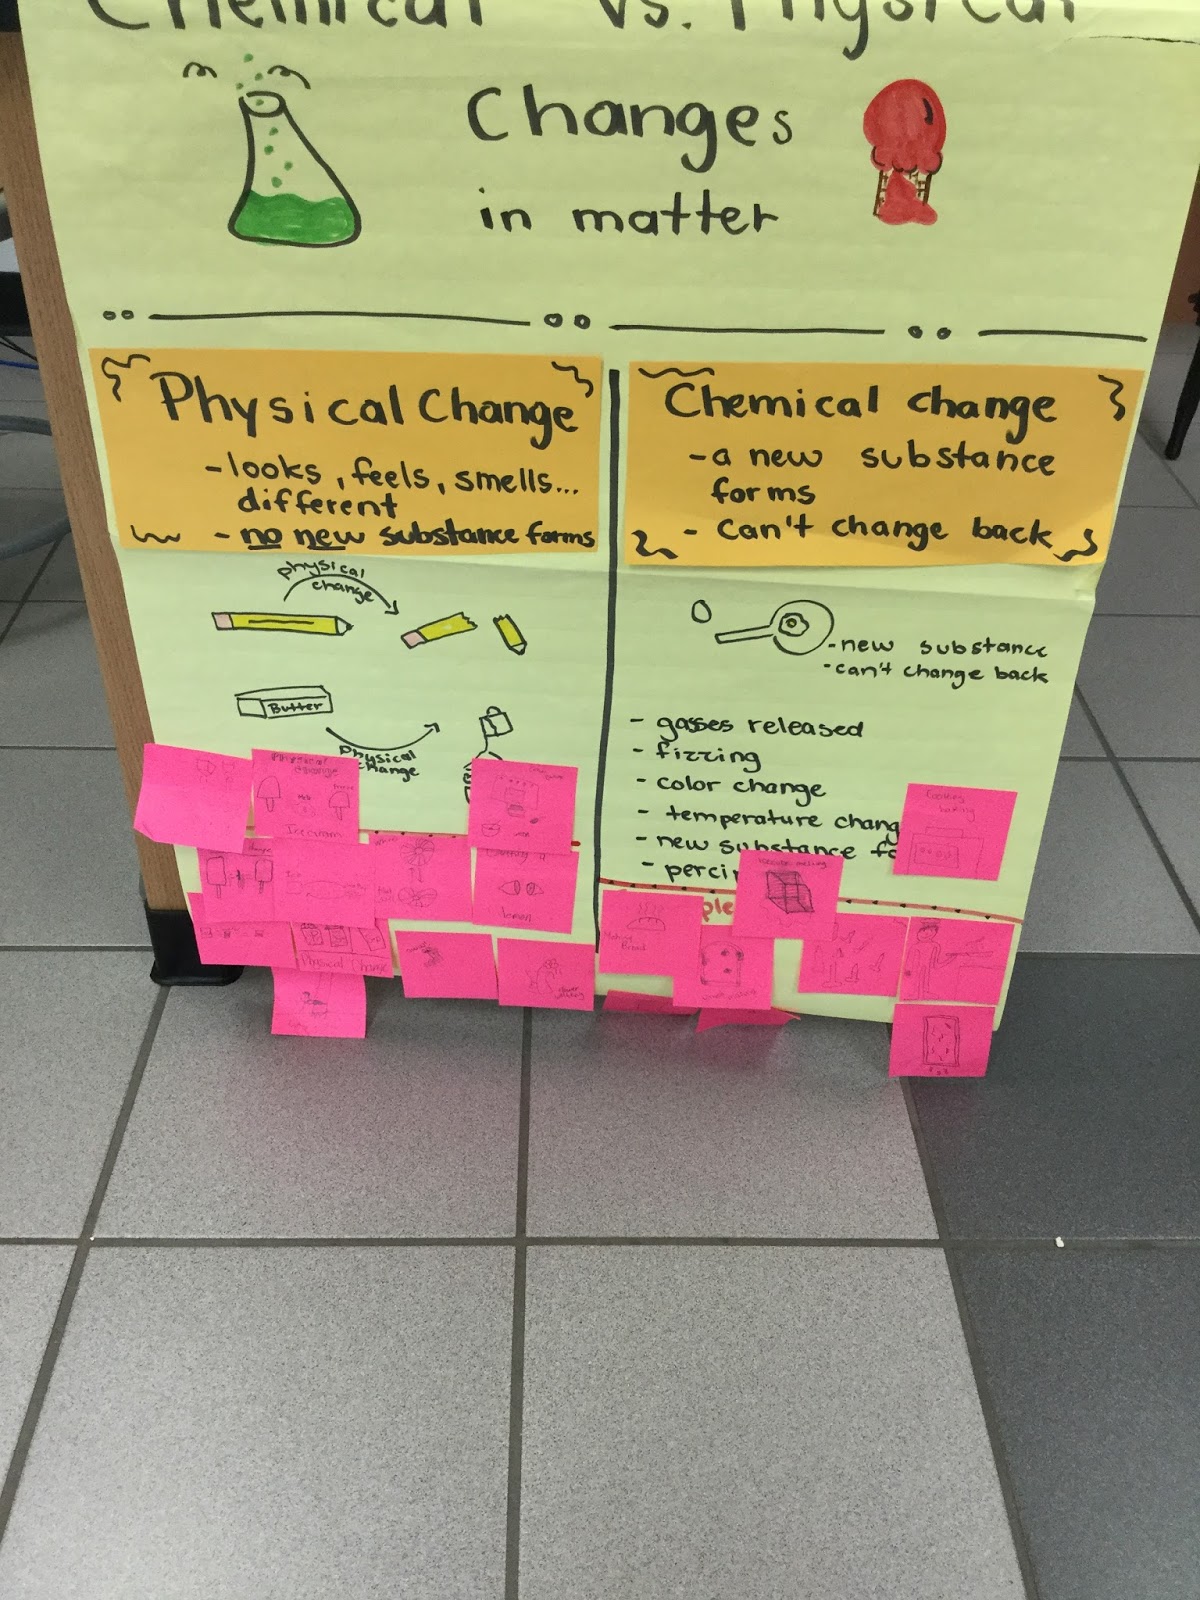 Chemical vs. Physical
Changes
in matter
Physical Change
- looks, feels, smells...
different
- no new substance forms
physical
change
Butter
Physical
change
Chemical change
- a new substance
forms
- can't change back
- new substance
- can't change back
- gasses released
- fizzing
- color change
- temperature chang
- new substance fo
- perci
Physical
change
Melt
Ice cream
lemon
Physical Change
Cooking
baking
melting
Making
Bread